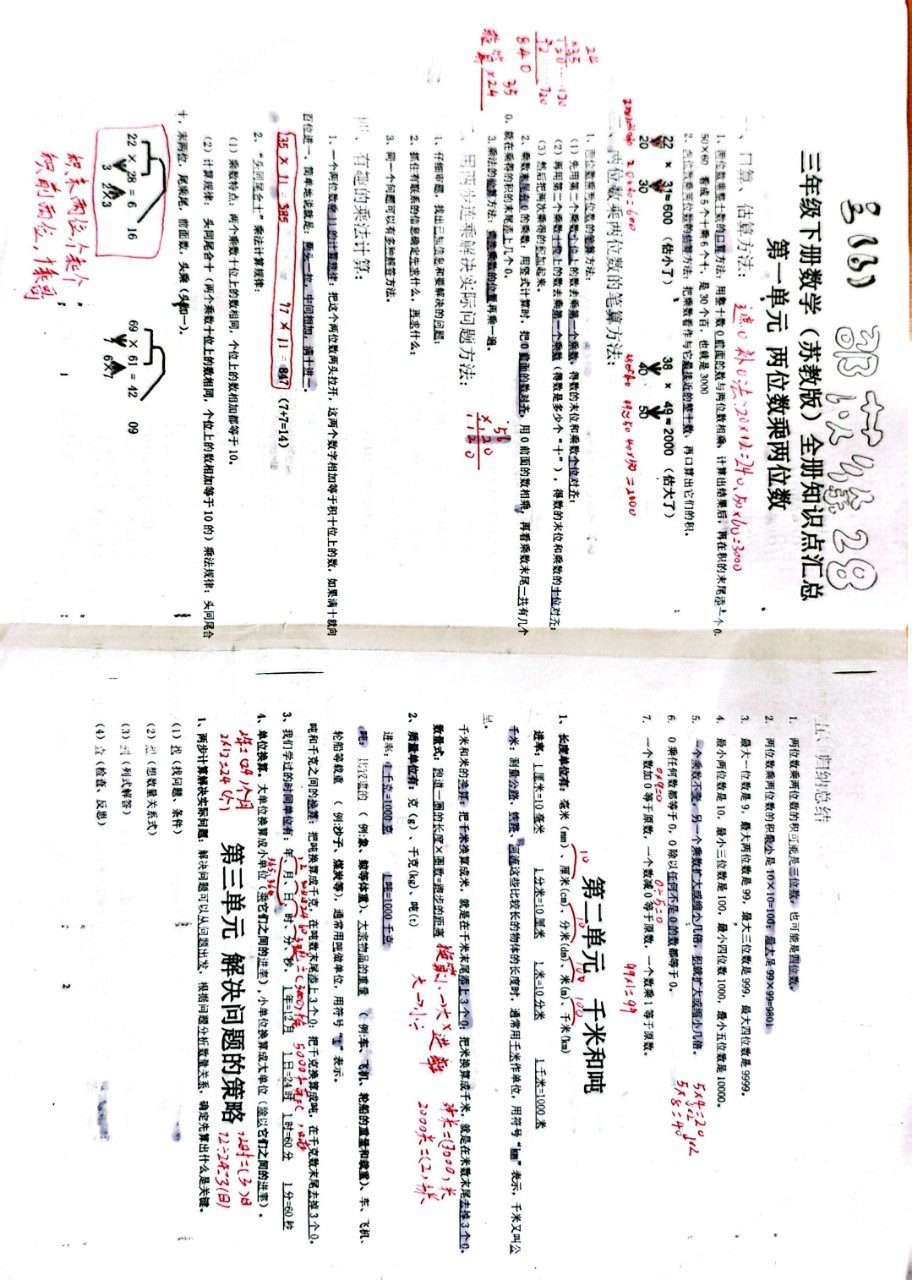 三(6)
28
三年级下册数学（苏教版）全册知识点汇总
第一单元 两位数乘两位数
一、口算、估算方法：
遮0补0法:20×12=240、50×60=3000
1. 两位数乘整十数的口算方法：用整十数0前面的数与两位数相乘，计算出结果后，再在积的末尾添上个0.
50×60 看成5个十乘6个十，是30个百，也就是3000
2. 两位数乘两位数的估算方法：把乘数看作与它最接近的整十数，再口算出它们的积。
22 × 31≈600（估小了）
20 30
38 × 49≈2000（估大了）
40 50
20×30=600
49≈50 40×50=2000
二、两位数乘两位数的笔算方法：
1. 两位数乘两位数的笔算方法：
（1）先用第二个乘数个位上的数去乘第一个乘数，得数的末位和乘数个位对齐；
（2）再用第二个乘数十位上的数去乘第一个乘数（得数是多少个“十”），得数的末位和乘数的十位对齐；
（3）然后把两次乘得的积加起来。
2. 乘数末尾有0的乘数，用竖式计算时，把0前面的数对齐，用0前面的数相乘，再看乘数末尾一共有几个
0，就在乘得的积的末尾添上几个0。
3. 乘法的验算方法：交换乘数的位置再乘一遍。
24
×35
120
72
840
验算
35
×24
三、用两步连乘解决实际问题方法：
56
×20
1120
1. 仔细审题，找出已知信息和要解决的问题；
2. 抓住有联系的信息确定先求什么，再求什么；
3. 同一个问题可以有多种解答方法。
四、有趣的乘法计算：
1、一个两位数乘11的计算规律：把这个两位数两头拉开，这两个数字相加等于积十位上的数，如果满十就向
百位进一，简单地说就是：两头一拉，中间相加，满十进一。
35 × 11 = 385 77 × 11 = 847 （7+7=14）
2、“头同尾合十”乘法计算规律：
（1）乘数特点：两个乘数十位上的数相同，个位上的数相加都等于10。
（2）计算规律：头同尾合十（两个乘数十位上的数相同，个位上的数相加等于10的）乘法规律：头同尾合
十，末两位，尾乘尾，前面数，头乘（头加一）。
22 × 28 = 6 16
3
2×3
69 × 61 = 42 09
7
6×7
积末两位,个乘个
积前两位,十乘哥
1
五、归纳总结
1. 两位数乘两位数的积可能是三位数，也可能是四位数。
2. 两位数乘两位数的积最小是10×10=100；最大是99×99=9801
3. 最大一位数是9，最大两位数是99，最大三位数是999，最大四位数是9999。
4. 最小两位数是10，最小三位数是100，最小四位数1000，最小五位数是10000。
5. 一个乘数不变，另一个乘数扩大或缩小几倍，积就扩大或缩小几倍。
5×4=20
5×8=40
6. 0乘任何数都等于0，0除以任何不是0的数都等于0。
0×9=0 0÷5=0
7. 一个数加0等于原数，一个数减0等于原数，一个数乘1等于原数。
99×1=99
第二单元 千米和吨
10 10 10
1、长度单位有：毫米（mm）、厘米（cm）、分米（dm）、米（m）、千米（km）
进率：1厘米=10毫米 1分米=10厘米 1米=10分米 1千米=1000米
千米：测量公路、铁路、河流这些比较长的物体的长度时，通常用千米作单位，用符号“km”表示，千米又叫公
里。
千米和米的换算：把千米换算成米，就是在千米末尾添上3个0；把米换算成千米，就是在米数末尾去掉3个0。
数量式：跑道一圈的长度×圈数=跑步的距离
换算小→大÷进率
大→小×
3千米=(3000)米
2000米=(2)千米
2、质量单位有：克（g）、千克（kg）、吨（t）
进率：1千克=1000克 1吨=1000千克
吨：比较重的（例:象、鲸等体重）、大宗物品的重量（例:车、飞机、轮船的重量和载重）、车、飞机、
轮船等载重（例:沙子、煤炭等），通常用吨做单位，用符号“t”表示。
吨和千克之间的换算：把吨换算成千克，在吨数末尾添上3个0；把千克换算成吨，在千克数末尾去掉3个0。
3、我们学过的时间单位有：年、月、日、时、分、秒。 1年=12月 1日=24时 1时=60分 1分=60秒
4、单位换算。大单位换算成小单位（乘它们之间的进率），小单位换算成大单位（除以它们之间的进率）。
2年=(24)个月
2×12=24(个)
72时=(3)日
72÷24=3(日)
第三单元 解决问题的策略
1、两步计算解决实际问题：解决问题可以从问题出发，根据问题分析数量关系，确定先算出什么是关键。
（1）找（找问题、条件）
（2）想（想数量关系式）
（3）列（列式解答）
（4）查（检查、反思）
2